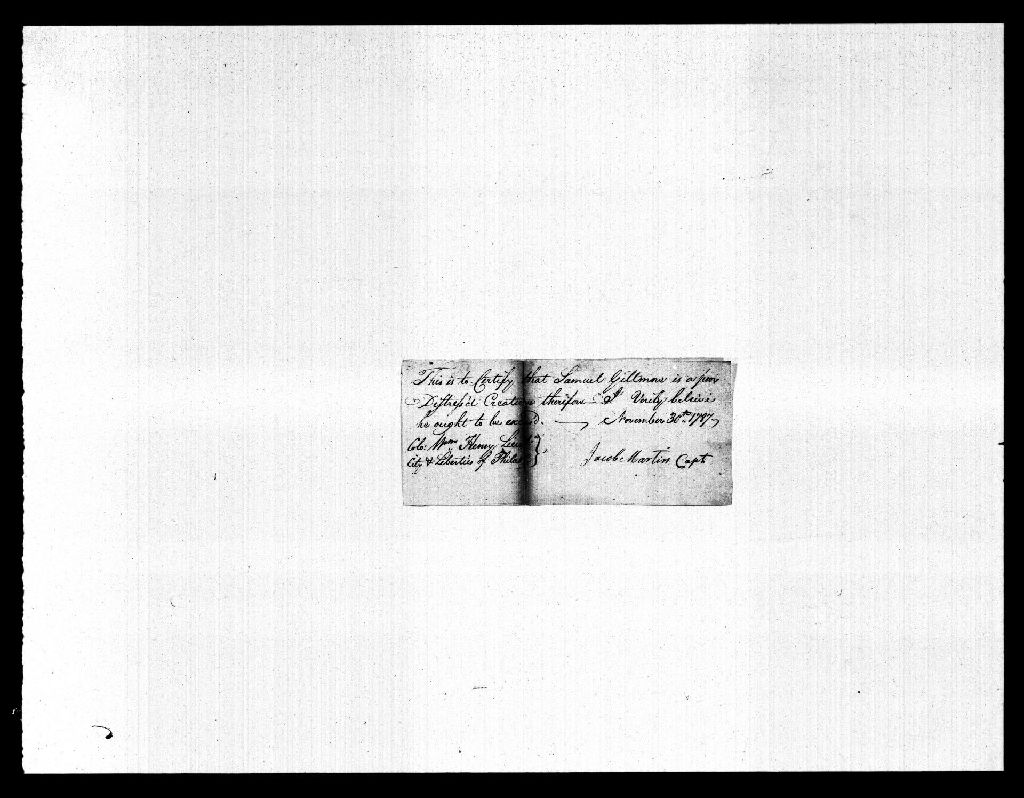 This is to Certify that Samuel Gillmore is a poor
Distress'd Creature therefore I Verily believe
he ought to be excused. November 30th. 1787
Colo: Wm. Henry Lieut
City & Liberties of Philad
Jacob Martin Capt